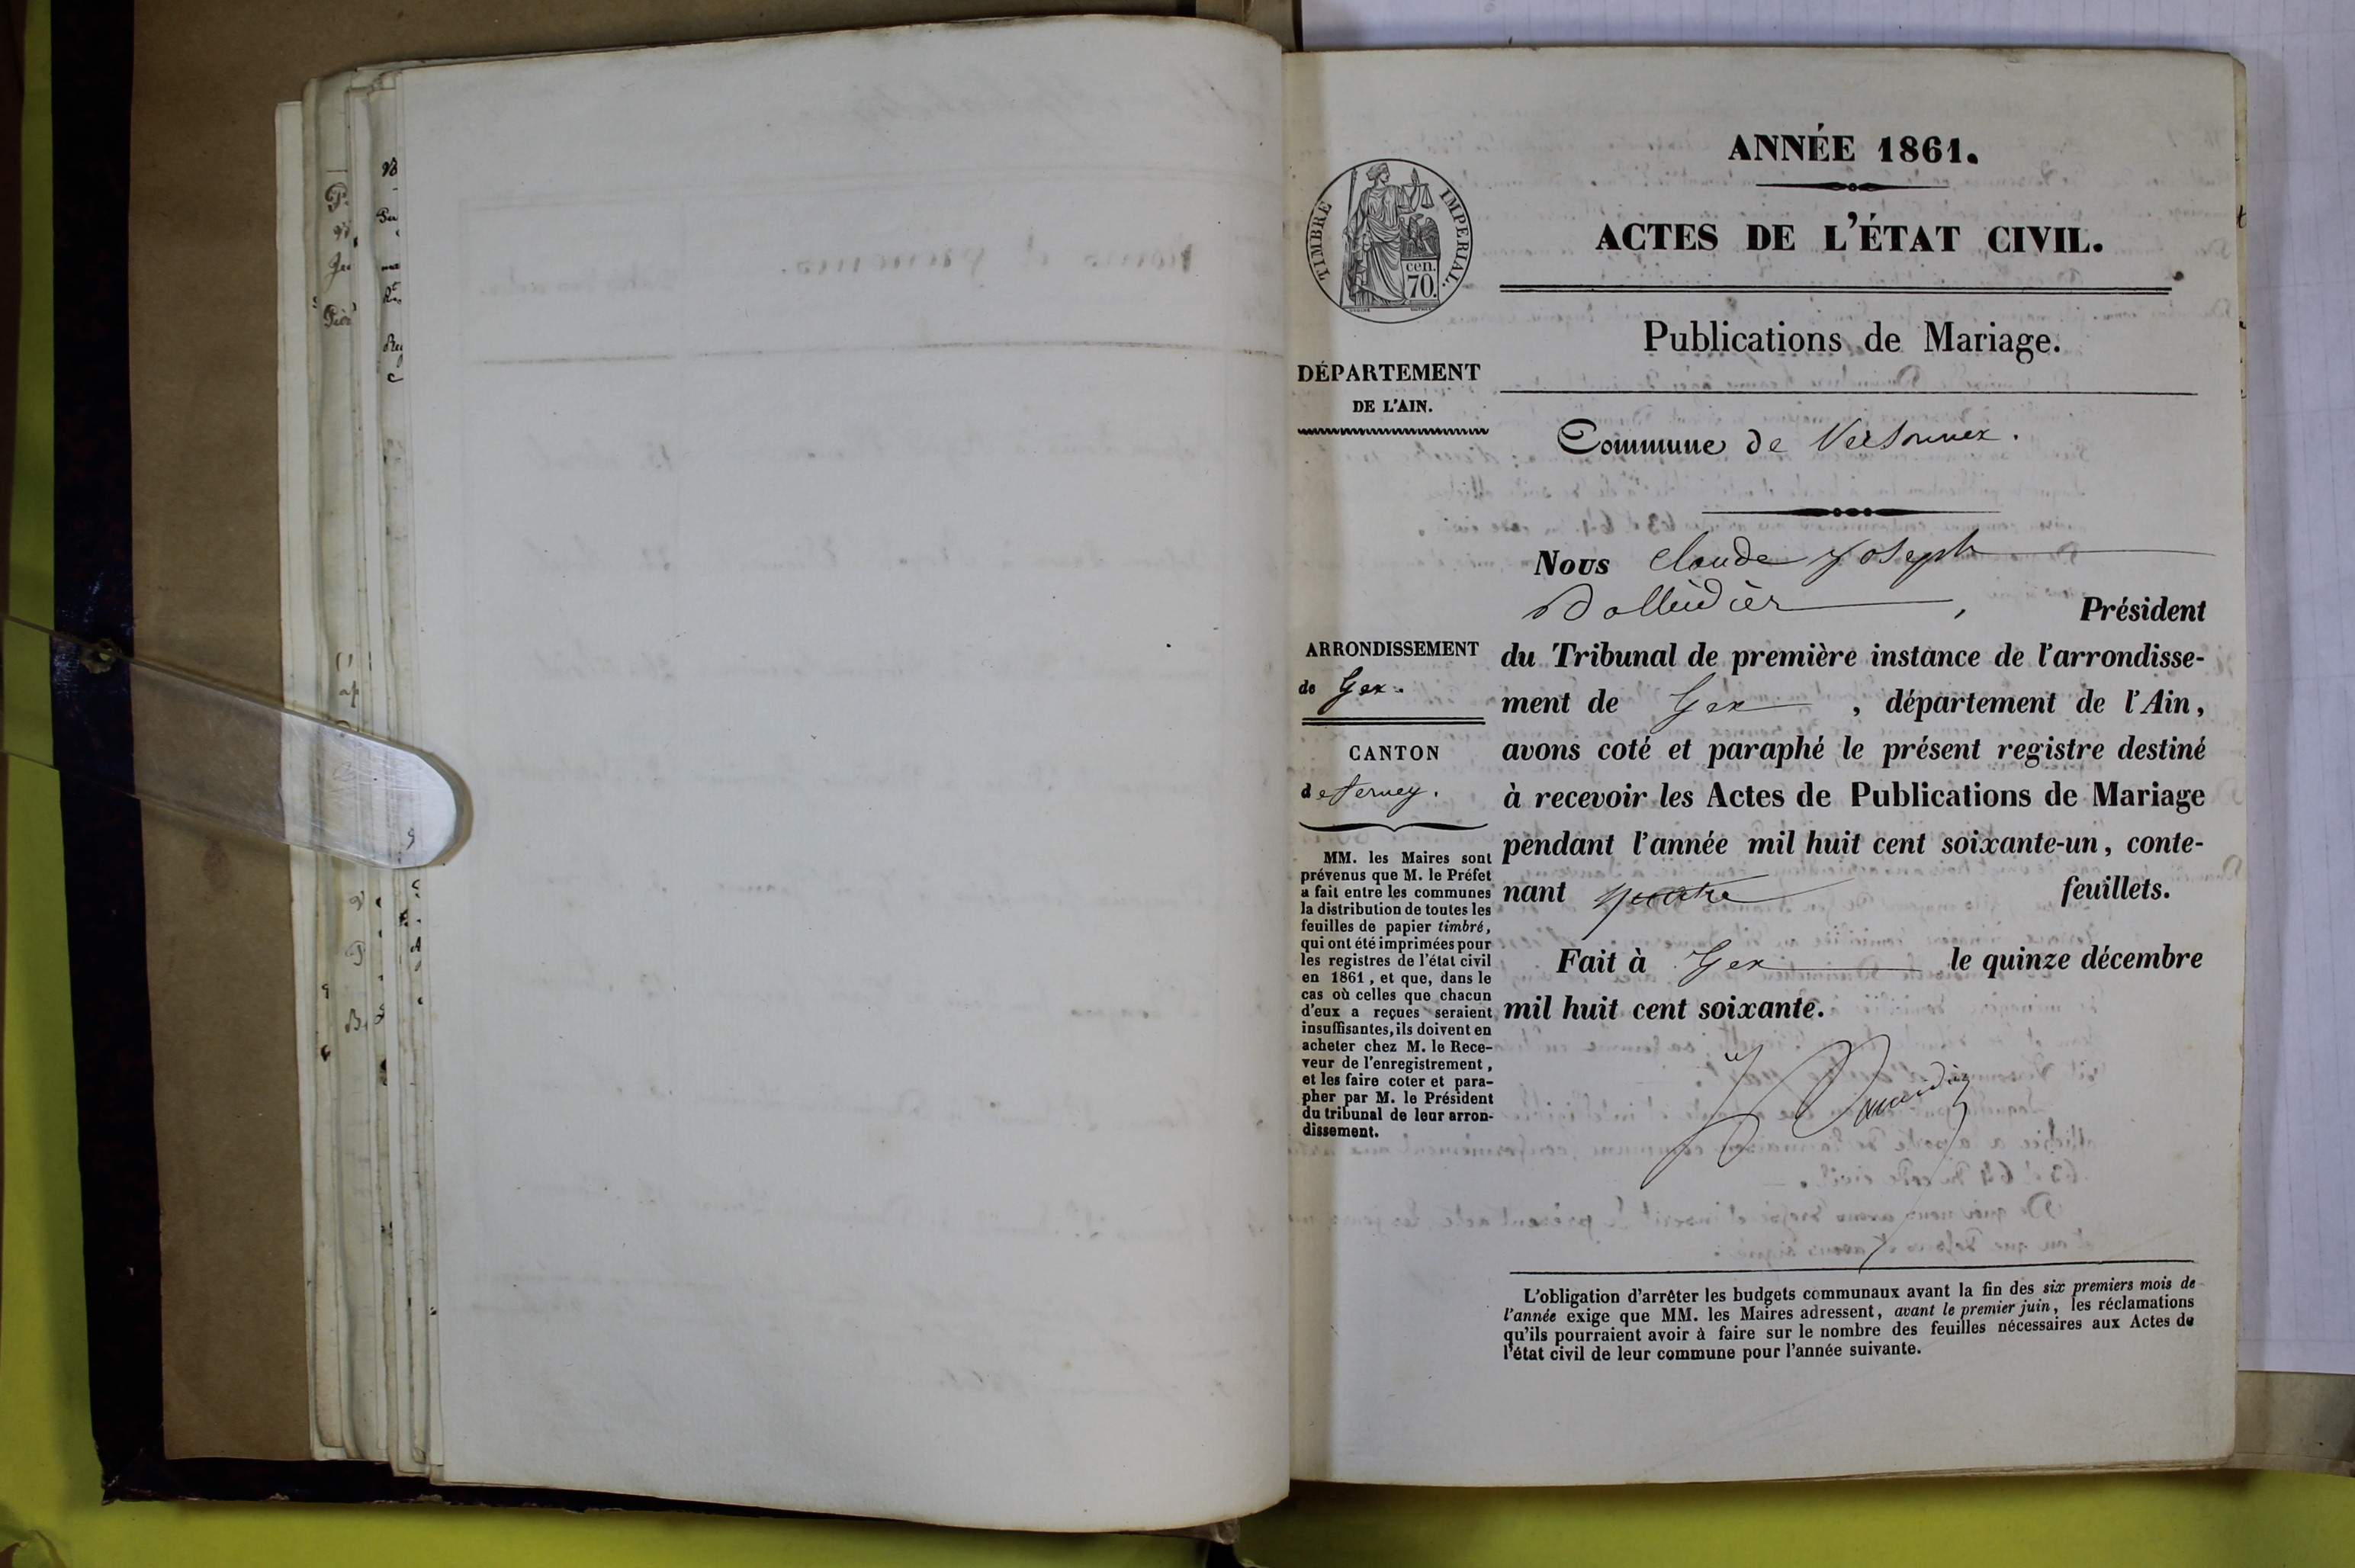 ANNÉE 1861.
ACTES DE L'ÉTAT CIVIL.
TIMBRE IMPERIAL.
cen.
70.
Publications de Mariage.
DÉPARTEMENT
DE L'AIN.
Commune de Versonnex.
Nous Claude Joseph
Président
ARRONDISSEMENT
de Gex.
CANTON
de Ferney.
MM. les Maires sont
prévenus que M. le Préfet
a fait entre les communes
la distribution de toutes les
feuilles de papier timbré,
qui ont été imprimées pour
les registres de l'état civil
en 1861, et que, dans le
cas où celles que chacun
d'eux a reçues seraient
insuffisantes, ils doivent en
acheter chez M. le Rece-
veur de l'enregistrement,
et les faire coter et para-
pher par M. le Président
du tribunal de leur arron-
dissement.
du Tribunal de première instance de l'arrondisse-
ment de Gex, département de l'Ain,
avons coté et paraphé le présent registre destiné
à recevoir les Actes de Publications de Mariage
pendant l'année mil huit cent soixante-un, conte-
nant quatre feuillets.
Fait à Gex le quinze décembre
mil huit cent soixante.
L'obligation d'arrêter les budgets communaux avant la fin des six premiers mois de
l'année exige que MM. les Maires adressent, avant le premier juin, les réclamations
qu'ils pourraient avoir à faire sur le nombre des feuilles nécessaires aux Actes de
l'état civil de leur commune pour l'année suivante.